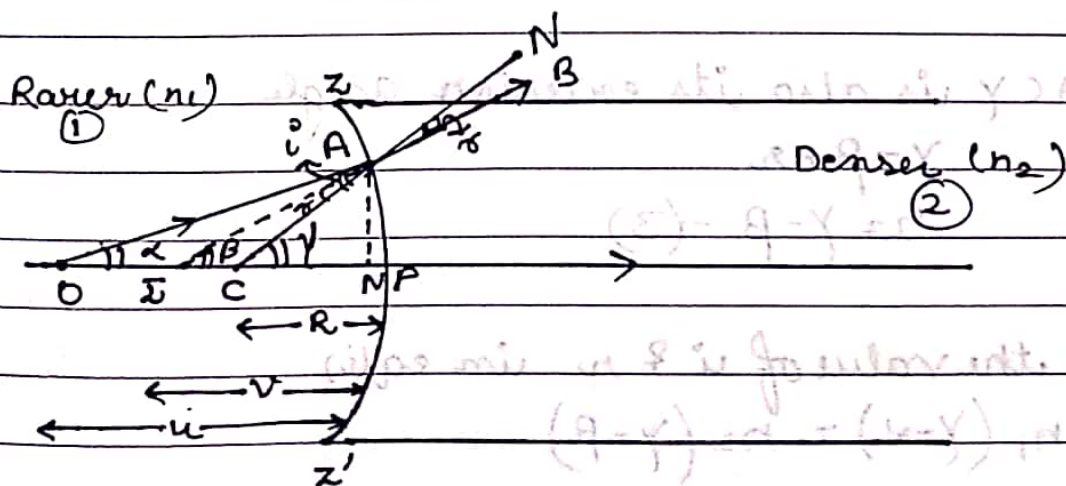 N
B
Rarer (n₁) Z
①
i A r
Denser (n₂)
②
r
α β γ
O I C N P
R
v
u
Z'